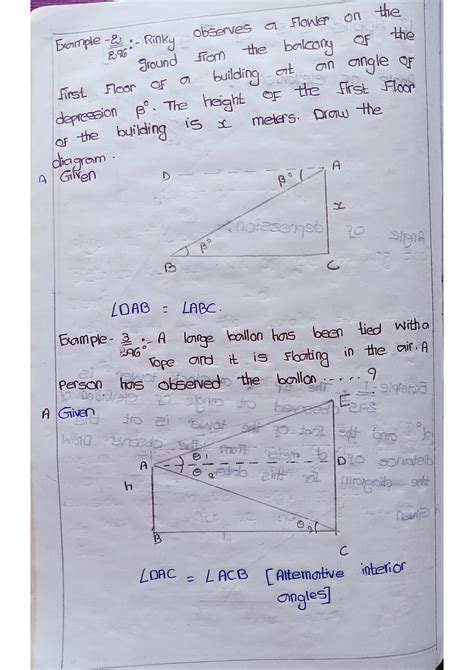 Example - 2 :- Rinky observes a flower on the
296
ground from the balcony of the
first floor of a building at an angle of
depression β°. The height of the first floor
of the building is x meters. Draw the
diagram.
A Given
D
A
β°
x
β°
B
C
∠DAB = ∠ABC.
Example - 3 :- A large ballon has been tied with a
296
rope and it is floating in the air. A
person has observed the ballon ..... ?
A Given
E
θ1
A
D
θ2
h
θ2
B
C
∠DAC = ∠ACB [Alternative interior
angles]